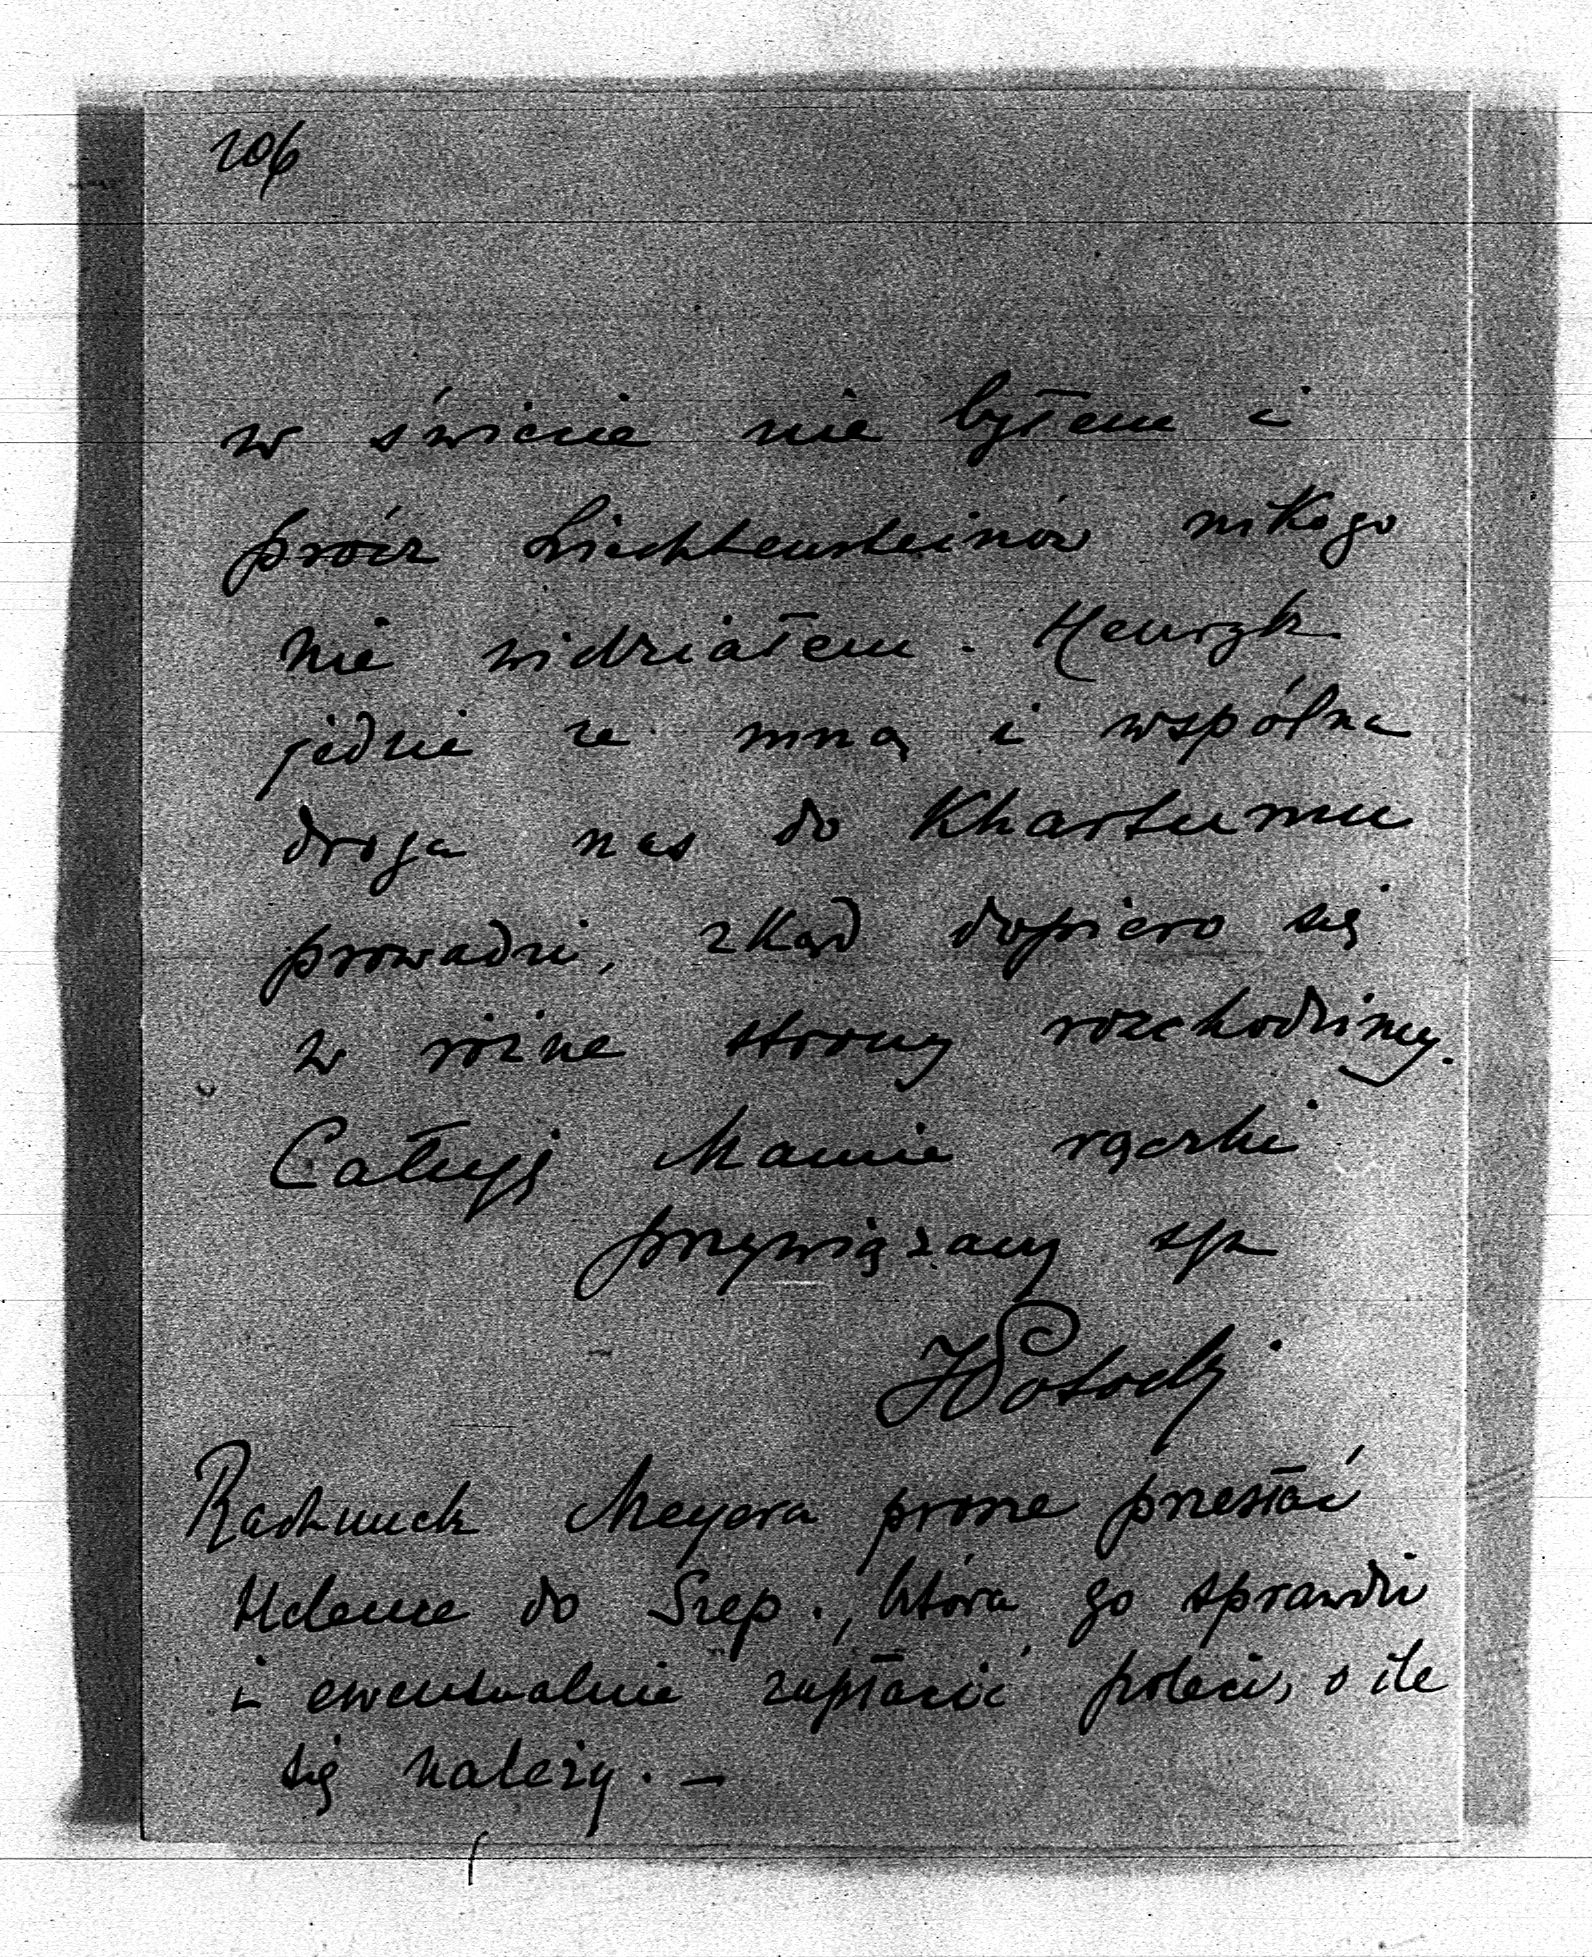 206
w świecie nie byłem i
prócz Liechtensteinów nikogo
nie widziałem. Henryk
jedzie ze mną i wspólna
droga nas do Khartumu
prowadzi, zkąd dopiero się
w różne strony rozchodzimy.
Całuję Mamie rączki
przywiązany
JPotocki
Rachunek Meyera proszę przesłać
Helence do Szep., która go sprawdzi
i ewentualnie zapłacić poleci, o ile
się należy. —